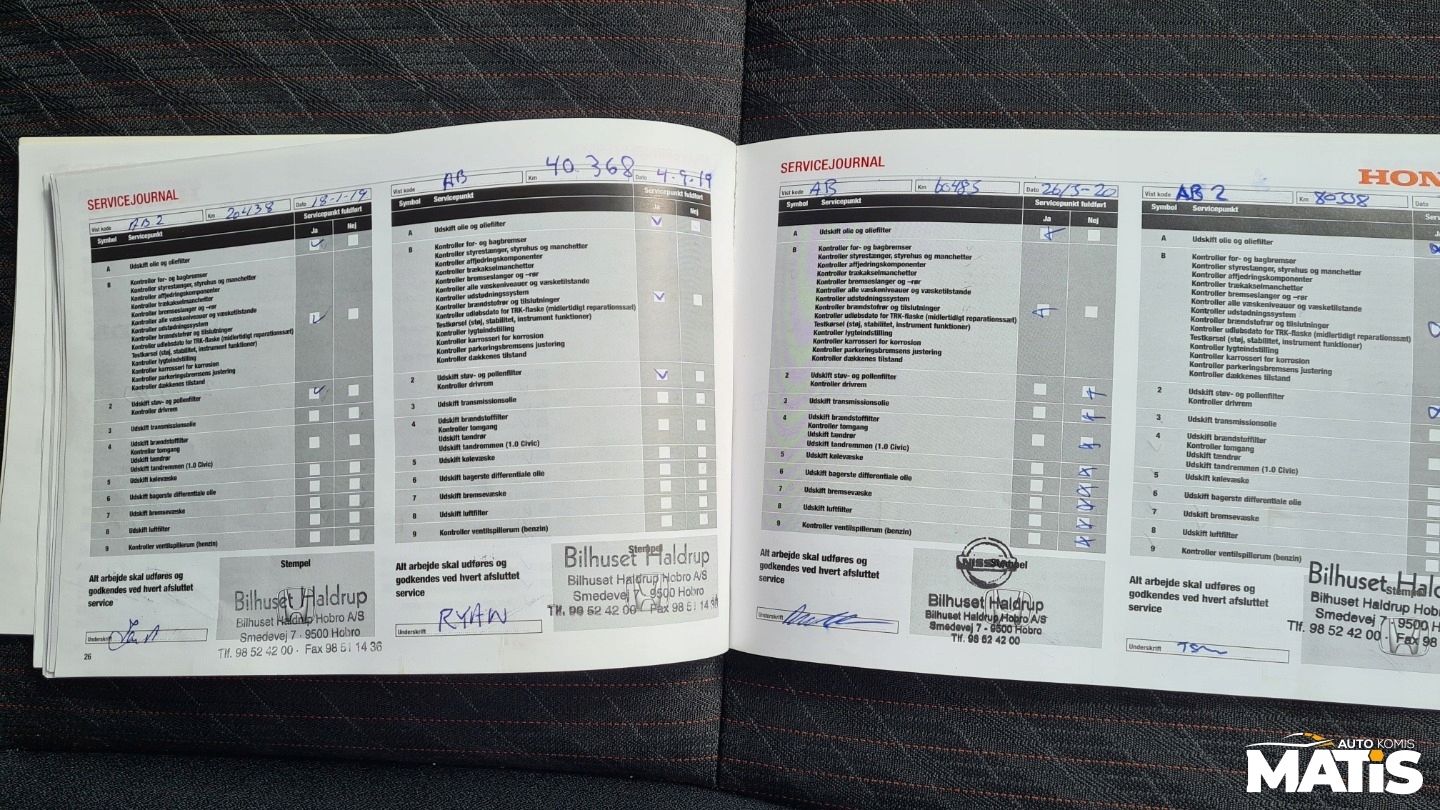 SERVICEJOURNAL
Vist kode AB 2 Km 20438 Dato 18-1-19
Symbol Servicepunkt Servicepunkt fuldført
Ja Nej
A Udskift olie og oliefilter
B Kontroller for- og bagbremser
Kontroller styrestænger, styrehus og manchetter
Kontroller affjedringskomponenter
Kontroller trækakselmanchetter
Kontroller bremseslanger og –rør
Kontroller alle væskeniveauer og væsketilstande
Kontroller udstødningssystem
Kontroller brændstofrør og tilslutninger
Kontroller udløbsdato for TRK-flaske (midlertidigt reparationssæt)
Testkørsel (støj, stabilitet, instrument funktioner)
Kontroller lygteindstilling
Kontroller karrosseri for korrosion
Kontroller parkeringsbremsens justering
Kontroller dækkenes tilstand
2 Udskift støv- og pollenfilter
Kontroller drivrem
3 Udskift transmissionsolie
4 Udskift brændstoffilter
Kontroller tomgang
Udskift tændrør
Udskift tandremmen (1.0 Civic)
5 Udskift kølevæske
6 Udskift bagerste differentiale olie
7 Udskift bremsevæske
8 Udskift luftfilter
9 Kontroller ventilspillerum (benzin)
Alt arbejde skal udføres og
godkendes ved hvert afsluttet
service
Underskrift
Stempel
Bilhuset Haldrup
Bilhuset Haldrup Hobro A/S
Smedevej 7 - 9500 Hobro
Tlf. 98 52 42 00 - Fax 98 51 14 36
26
Vist kode AB Km 40.368 Dato 4-9-19
Symbol Servicepunkt Servicepunkt fuldført
Ja Nej
A Udskift olie og oliefilter
B Kontroller for- og bagbremser
Kontroller styrestænger, styrehus og manchetter
Kontroller affjedringskomponenter
Kontroller trækakselmanchetter
Kontroller bremseslanger og –rør
Kontroller alle væskeniveauer og væsketilstande
Kontroller udstødningssystem
Kontroller brændstofrør og tilslutninger
Kontroller udløbsdato for TRK-flaske (midlertidigt reparationssæt)
Testkørsel (støj, stabilitet, instrument funktioner)
Kontroller lygteindstilling
Kontroller karrosseri for korrosion
Kontroller parkeringsbremsens justering
Kontroller dækkenes tilstand
2 Udskift støv- og pollenfilter
Kontroller drivrem
3 Udskift transmissionsolie
4 Udskift brændstoffilter
Kontroller tomgang
Udskift tændrør
Udskift tandremmen (1.0 Civic)
5 Udskift kølevæske
6 Udskift bagerste differentiale olie
7 Udskift bremsevæske
8 Udskift luftfilter
9 Kontroller ventilspillerum (benzin)
Alt arbejde skal udføres og
godkendes ved hvert afsluttet
service
Underskrift RYAN
Stempel
Bilhuset Haldrup
Bilhuset Haldrup Hobro A/S
Smedevej 7 - 9500 Hobro
Tlf. 98 52 42 00 - Fax 98 51 14 36
SERVICEJOURNAL
HON
Vist kode AB Km 60483 Dato 26/5-20
Symbol Servicepunkt Servicepunkt fuldført
Ja Nej
A Udskift olie og oliefilter
B Kontroller for- og bagbremser
Kontroller styrestænger, styrehus og manchetter
Kontroller affjedringskomponenter
Kontroller trækakselmanchetter
Kontroller bremseslanger og –rør
Kontroller alle væskeniveauer og væsketilstande
Kontroller udstødningssystem
Kontroller brændstofrør og tilslutninger
Kontroller udløbsdato for TRK-flaske (midlertidigt reparationssæt)
Testkørsel (støj, stabilitet, instrument funktioner)
Kontroller lygteindstilling
Kontroller karrosseri for korrosion
Kontroller parkeringsbremsens justering
Kontroller dækkenes tilstand
2 Udskift støv- og pollenfilter
Kontroller drivrem
3 Udskift transmissionsolie
4 Udskift brændstoffilter
Kontroller tomgang
Udskift tændrør
Udskift tandremmen (1.0 Civic)
5 Udskift kølevæske
6 Udskift bagerste differentiale olie
7 Udskift bremsevæske
8 Udskift luftfilter
9 Kontroller ventilspillerum (benzin)
Alt arbejde skal udføres og
godkendes ved hvert afsluttet
service
Underskrift
NISSAN Stempel
Bilhuset Haldrup
Bilhuset Haldrup Hobro A/S
Smedevej 7 - 9500 Hobro
Tlf. 98 52 42 00
Vist kode AB 2 Km 80338 Dato
Symbol Servicepunkt
A Udskift olie og oliefilter
B Kontroller for- og bagbremser
Kontroller styrestænger, styrehus og manchetter
Kontroller affjedringskomponenter
Kontroller trækakselmanchetter
Kontroller bremseslanger og –rør
Kontroller alle væskeniveauer og væsketilstande
Kontroller udstødningssystem
Kontroller brændstofrør og tilslutninger
Kontroller udløbsdato for TRK-flaske (midlertidigt reparationssæt)
Testkørsel (støj, stabilitet, instrument funktioner)
Kontroller lygteindstilling
Kontroller karrosseri for korrosion
Kontroller parkeringsbremsens justering
Kontroller dækkenes tilstand
2 Udskift støv- og pollenfilter
Kontroller drivrem
3 Udskift transmissionsolie
4 Udskift brændstoffilter
Kontroller tomgang
Udskift tændrør
Udskift tandremmen (1.0 Civic)
5 Udskift kølevæske
6 Udskift bagerste differentiale olie
7 Udskift bremsevæske
8 Udskift luftfilter
9 Kontroller ventilspillerum (benzin)
Alt arbejde skal udføres og
godkendes ved hvert afsluttet
service
Underskrift
Stempel
Bilhuset Hald
Bilhuset Haldrup Hobro
Smedevej 7 - 9500 Ho
Tlf. 98 52 42 00 - Fax 98
AUTO KOMIS
MATiS